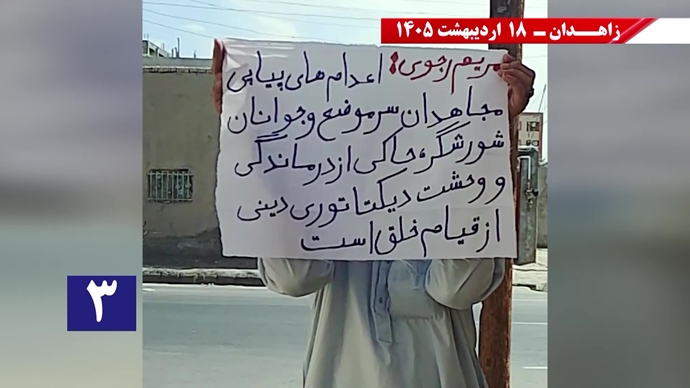 زاهـدان ــ ۱۸ اردیبهشت ۱۴۰۵
مریم رجوی: اعدام های پیاپی
مجاهدان سرموضع و جوانان
شورشگر، حاکی از درماندگی
و وحشت دیکتاتوری دینی
از قیام خلق است
۳